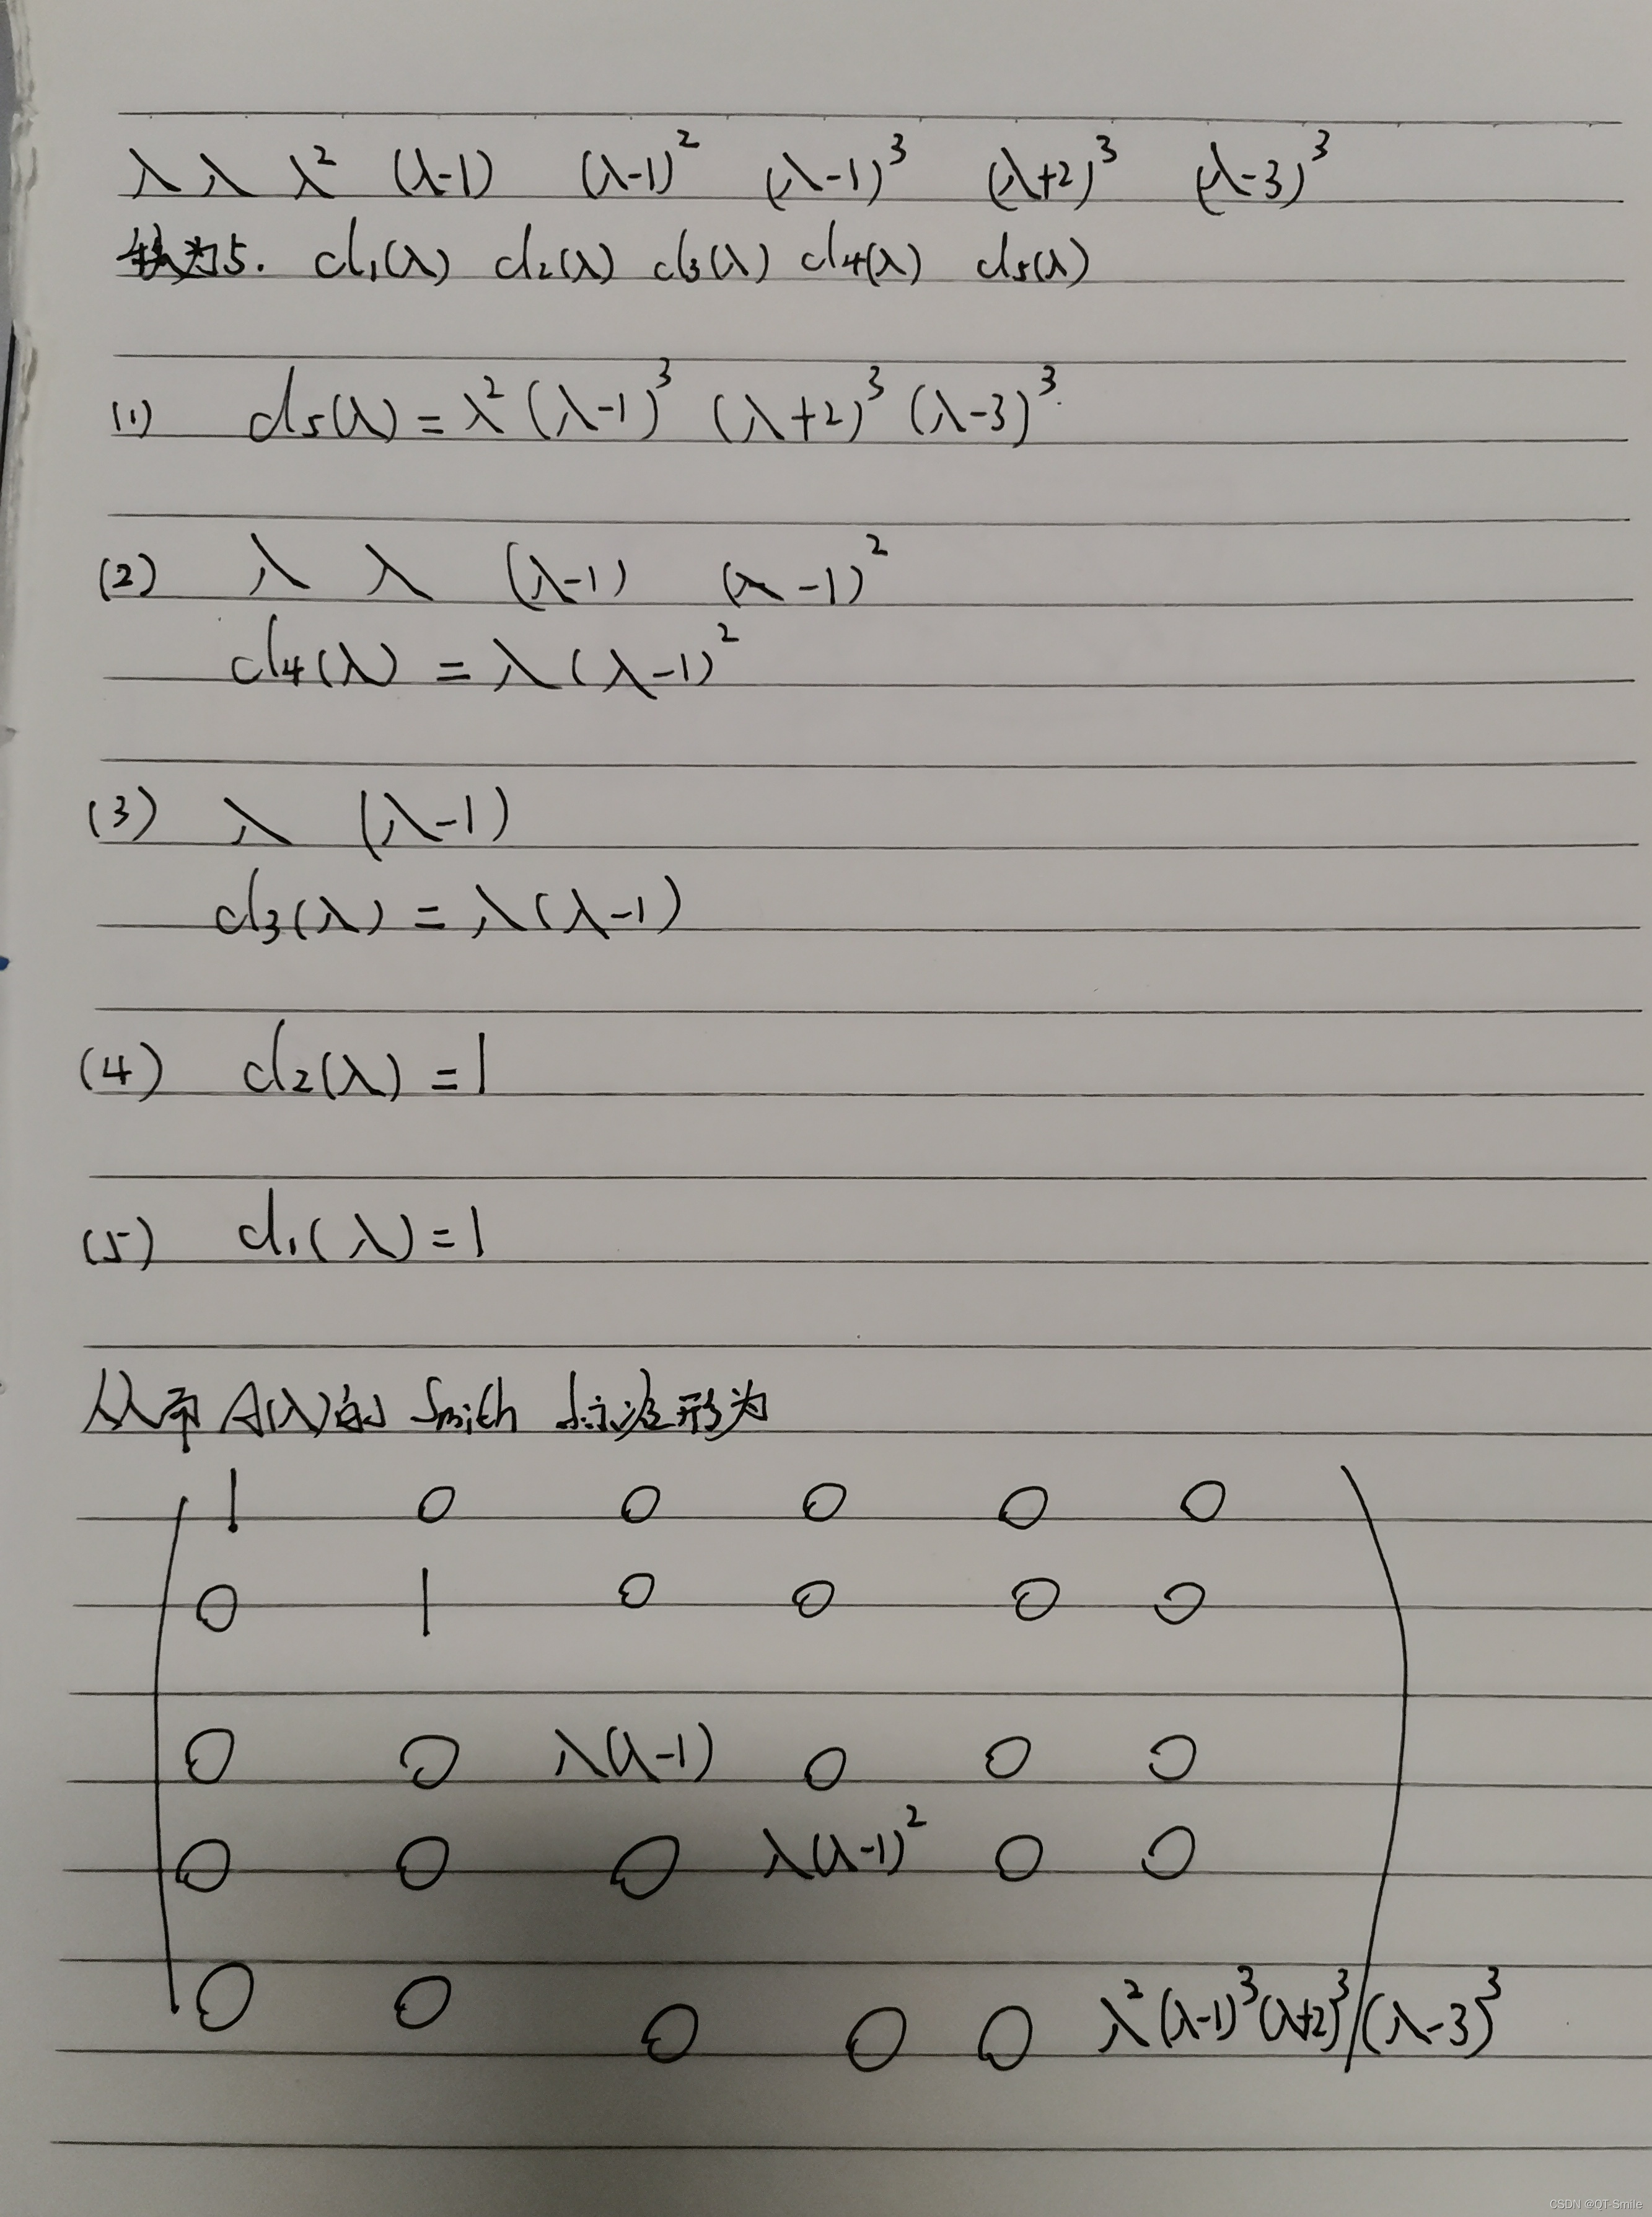 λ λ λ² (λ-1) (λ-1)² (λ-1)³ (λ+2)³ (λ-3)³
秩为5. d₁(λ) d₂(λ) d₃(λ) d₄(λ) d₅(λ)
(1) d₅(λ) = λ² (λ-1)³ (λ+2)³ (λ-3)³.
(2) λ λ (λ-1) (λ-1)²
d₄(λ) = λ(λ-1)²
(3) λ (λ-1)
d₃(λ) = λ(λ-1)
(4) d₂(λ) = 1
(5) d₁(λ) = 1
从而 A(λ)的 Smith 标准形为
1 0 0 0 0 0
0 1 0 0 0 0
0 0 λ(λ-1) 0 0 0
0 0 0 λ(λ-1)² 0 0
0 0 0 0 0 λ²(λ-1)³(λ+2)³(λ-3)³
CSDN @QT-Smile